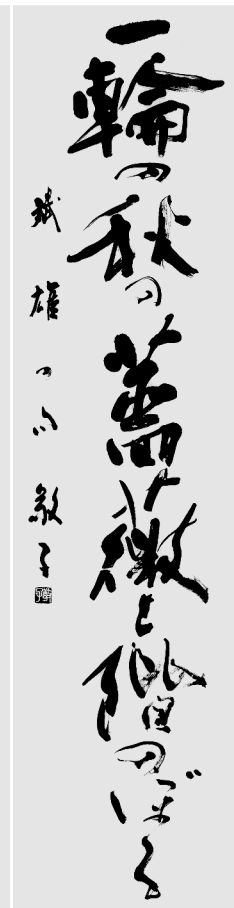 一輪の秋の薔薇と階のぼる
鐵雄の句 敬子